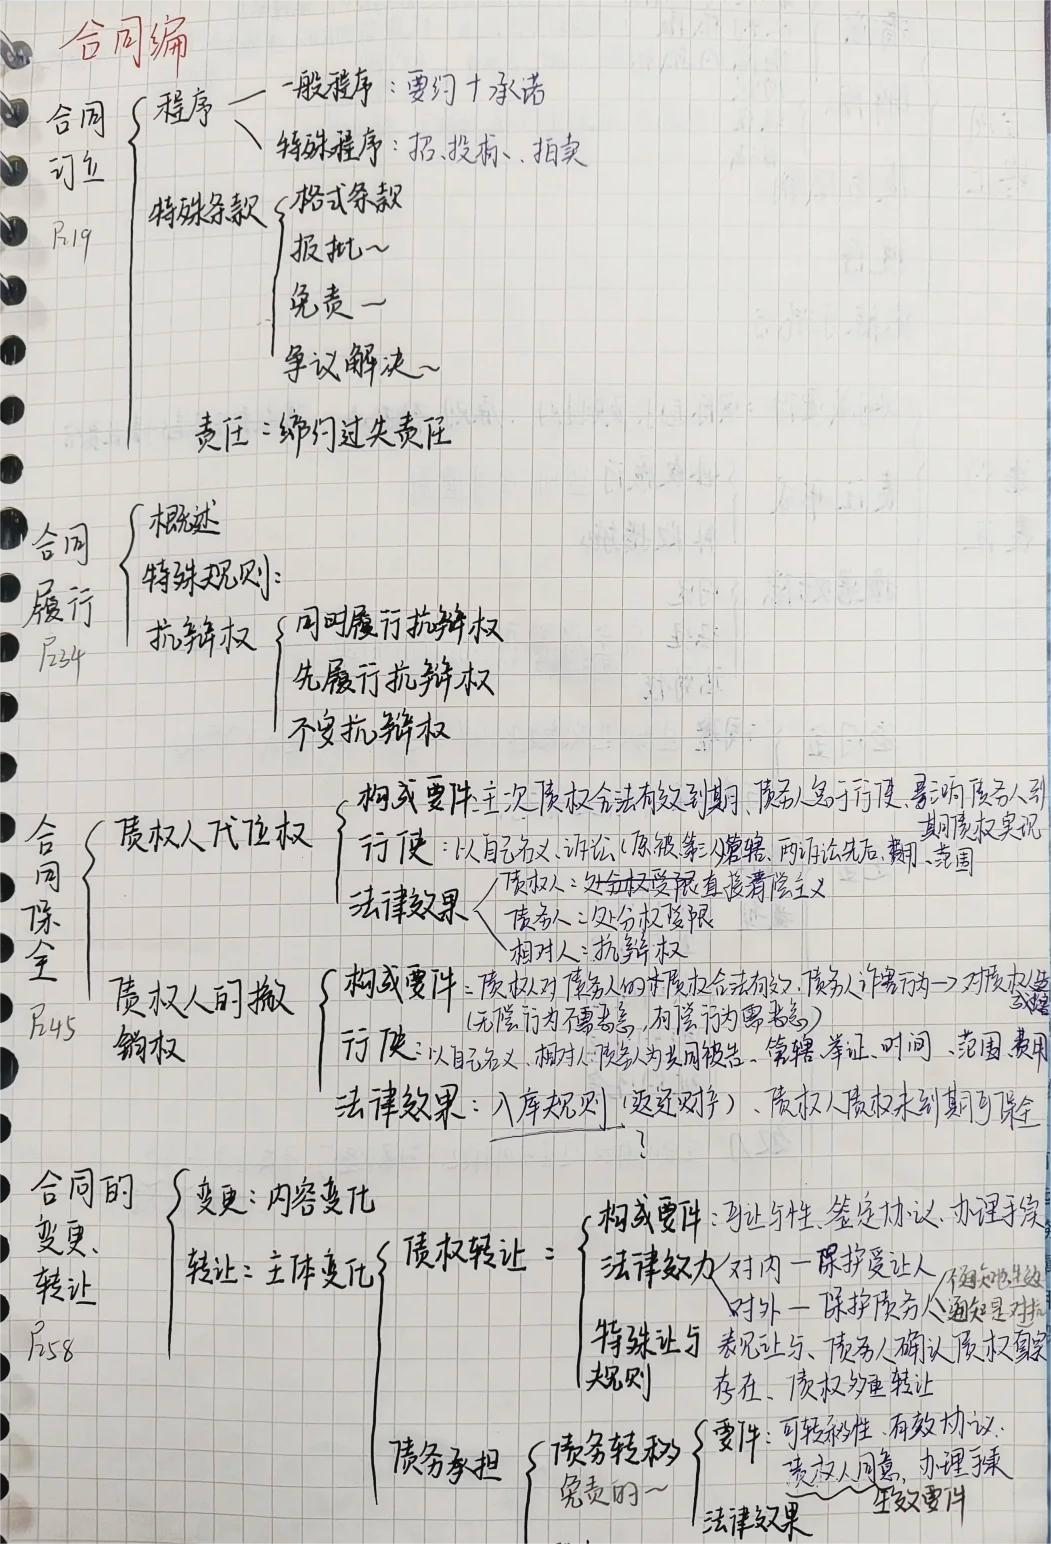 合同编
合同订立 P219
程序
一般程序：要约+承诺
特殊程序：招、投标、拍卖
特殊条款
格式条款
报批~
免责~
争议解决~
责任：缔约过失责任
合同履行 P234
概述
特殊规则：
抗辩权
同时履行抗辩权
先履行抗辩权
不安抗辩权
合同保全 P245
债权人代位权
构成要件：主次债权合法有效到期、债务人怠于行使、影响债务人到
期债权实现
行使：以自己名义、诉讼（原被第三人）管辖、两诉讼先后、费用、范围
法律效果
债权人：直接清偿主义
债务人：处分权受限
相对人：抗辩权
债权人的撤销权
构成要件：债权人对债务人的债权合法有效、债务人诈害行为→对债权人
（无偿行为不需恶意，有偿行为需恶意）
行使：以自己名义、相对人债务人为共同被告、管辖、举证、时间、范围、费用
法律效果：入库规则（返还财产）、债权人债权未到期可保全
?
合同的变更、转让 P258
变更：内容变化
转让：主体变化
债权转让：
构成要件：可让与性、签定协议、办理手续
法律效力
对内—保护受让人
对外—保护债务人
通知是对抗
特殊让与规则
表见让与、债务人确认债权真实
存在、债权多重转让
债务承担
债务转移
免责的~
要件：可转移性、有效协议、
债权人同意，办理手续
生效要件
法律效果